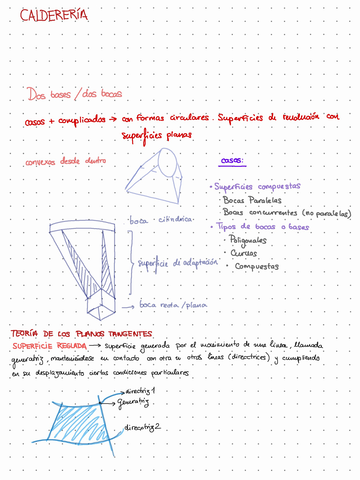 CALDERERÍA
Dos bases / dos bocas
casos + complicados → con formas circulares. Superficies de revolución con
superficies planas
convexas desde dentro
casos:
• Superficies compuestas
• Bocas Paralelas
Bocas concurrentes (no paralelas)
• Tipos de bocas o bases
• Poligonales
• Curvas
• Compuestas
boca cilíndrica
superficie de adaptación
→ boca recta / plana
TEORÍA DE LOS PLANOS TANGENTES
SUPERFICIE REGLADA → superficie generada por el movimiento de una línea, llamada
generatriz, manteniéndose en contacto con otra u otras líneas (directrices) y cumpliendo
en su desplazamiento ciertas condiciones particulares
directriz 1
generatriz
directriz 2